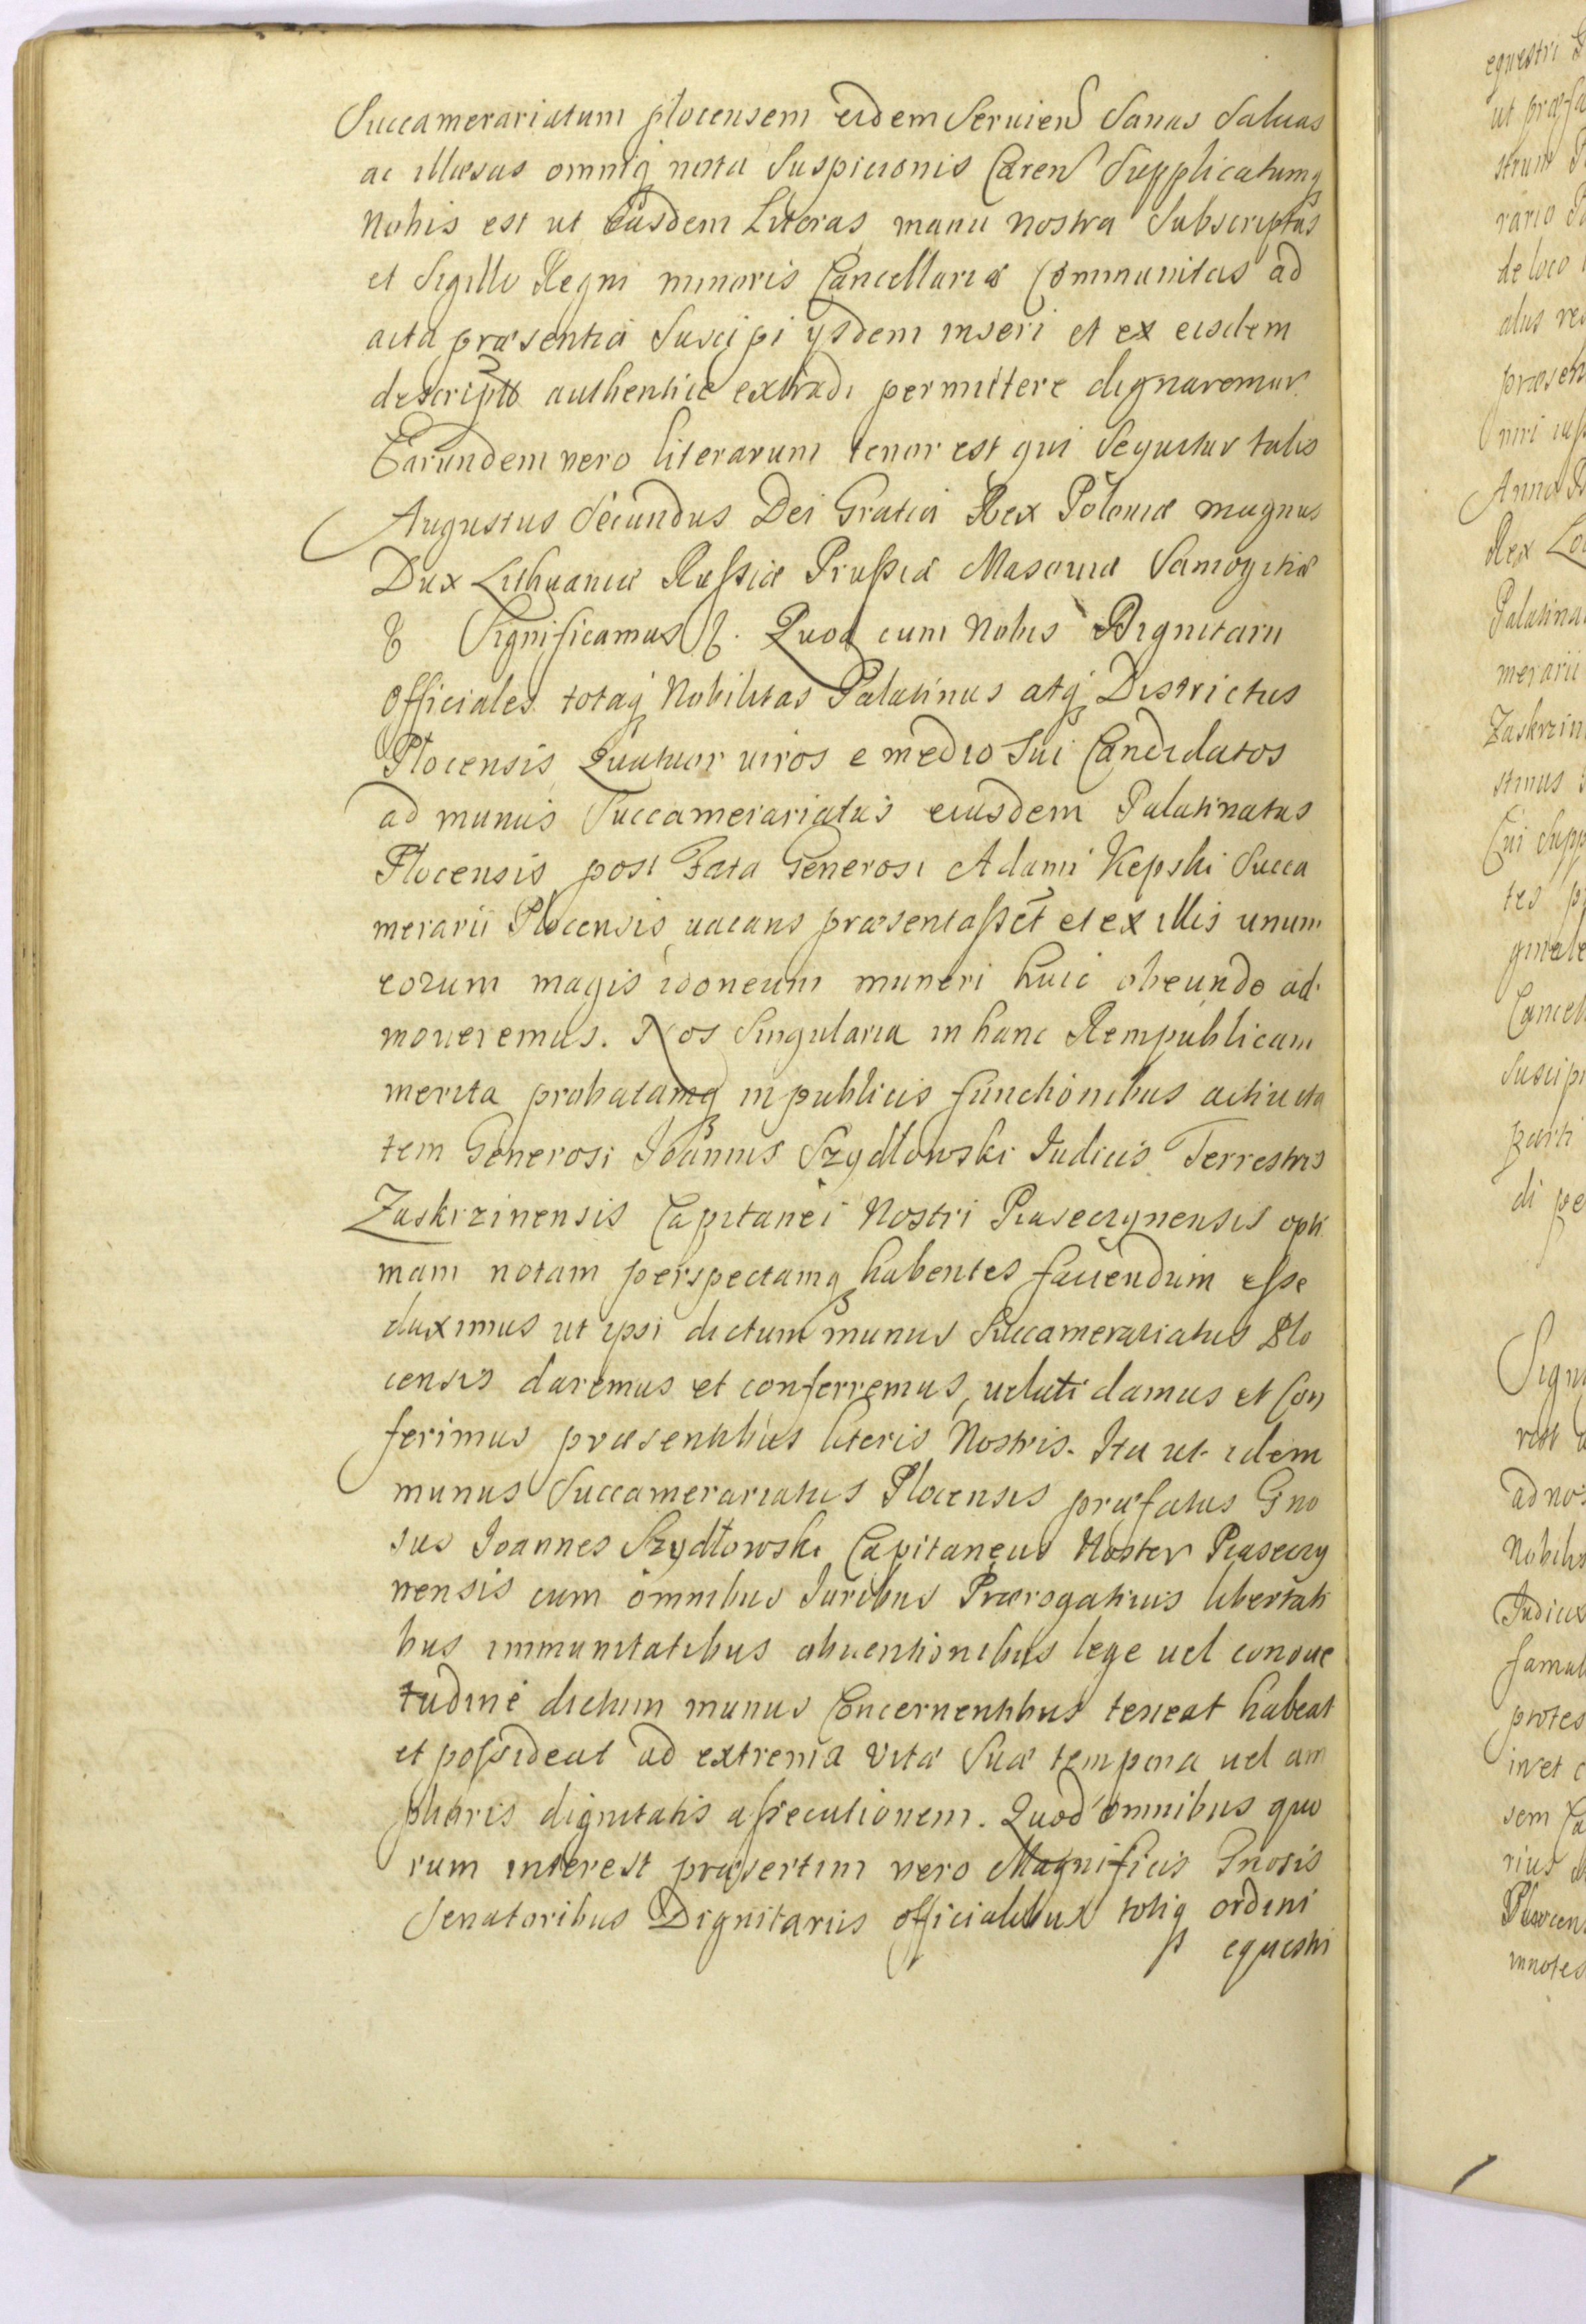 Succamerariatum plocensem eidem Seruien Sanas Saluas
ac illæsas omniq nota Suspicionis Caren Supplicatumq
Nobis est ut Easdem Literas manu nostra Subscriptas
et Sigillo Regni minoris Cancellariæ Communitas ad
acta præsentia Suscipi ysdem inseri et ex eisdem
descripto authentice extradi permittere dignaremur
Earundem vero literarum tenor est qui Sequitur talis
Augustus Secundus Dei Gratia Rex Poloniæ magnus
Dux Lithuaniæ Russiæ Prussiæ Masouiæ Samogitiæ
& Significamus &. Quod cum Nobis Dignitarii
Officiales totaq Nobilitas Palatinus atq Districtus
Plocensis Quatuor uiros e medio Sui Candidatos
ad munus Succamerariatus eiusdem Palatinatus
Plocensis post Fata Generosi Adami Kepski Succa
merarii Plocensis uacans præsentasset et ex illis unum
eorum magis idoneum muneri huic obeundo ad
moueremus. Nos Singularia in hanc Rempublicam
merita probatamq in publicis functionibus actiuita
tem Generosi Joannis Szydłowski Iudicis Terrestris
Zaskrzinensis Capitanei Nostri Piasecrynensis opti
mam notam perspectamq habentes fauendum esse
duximus ut ipsi dictum munus Succamerariatus Plo
censis daremus et conferremus, ueluti damus et Con
ferimus præsentibus literis Nostris. Ita ut idem
munus Succamerariatus Plocensis præfatus Gno
sus Joannes Szydłowski Capitaneus Noster Piasecry
nensis cum omnibus Iuribus Prærogatiuis libertati
bus immunitatibus obuentionibus lege uel consue
tudine dictum munus Concernentibus teneat habeat
et possideat ad extrema Vitæ Suæ tempora uel am
plioris dignitatis assecutionem. Quod omnibus quo
rum interest præsertim vero Magnificis Gnosis
Senatoribus Dignitariis officialibus totiq ordini
equestri